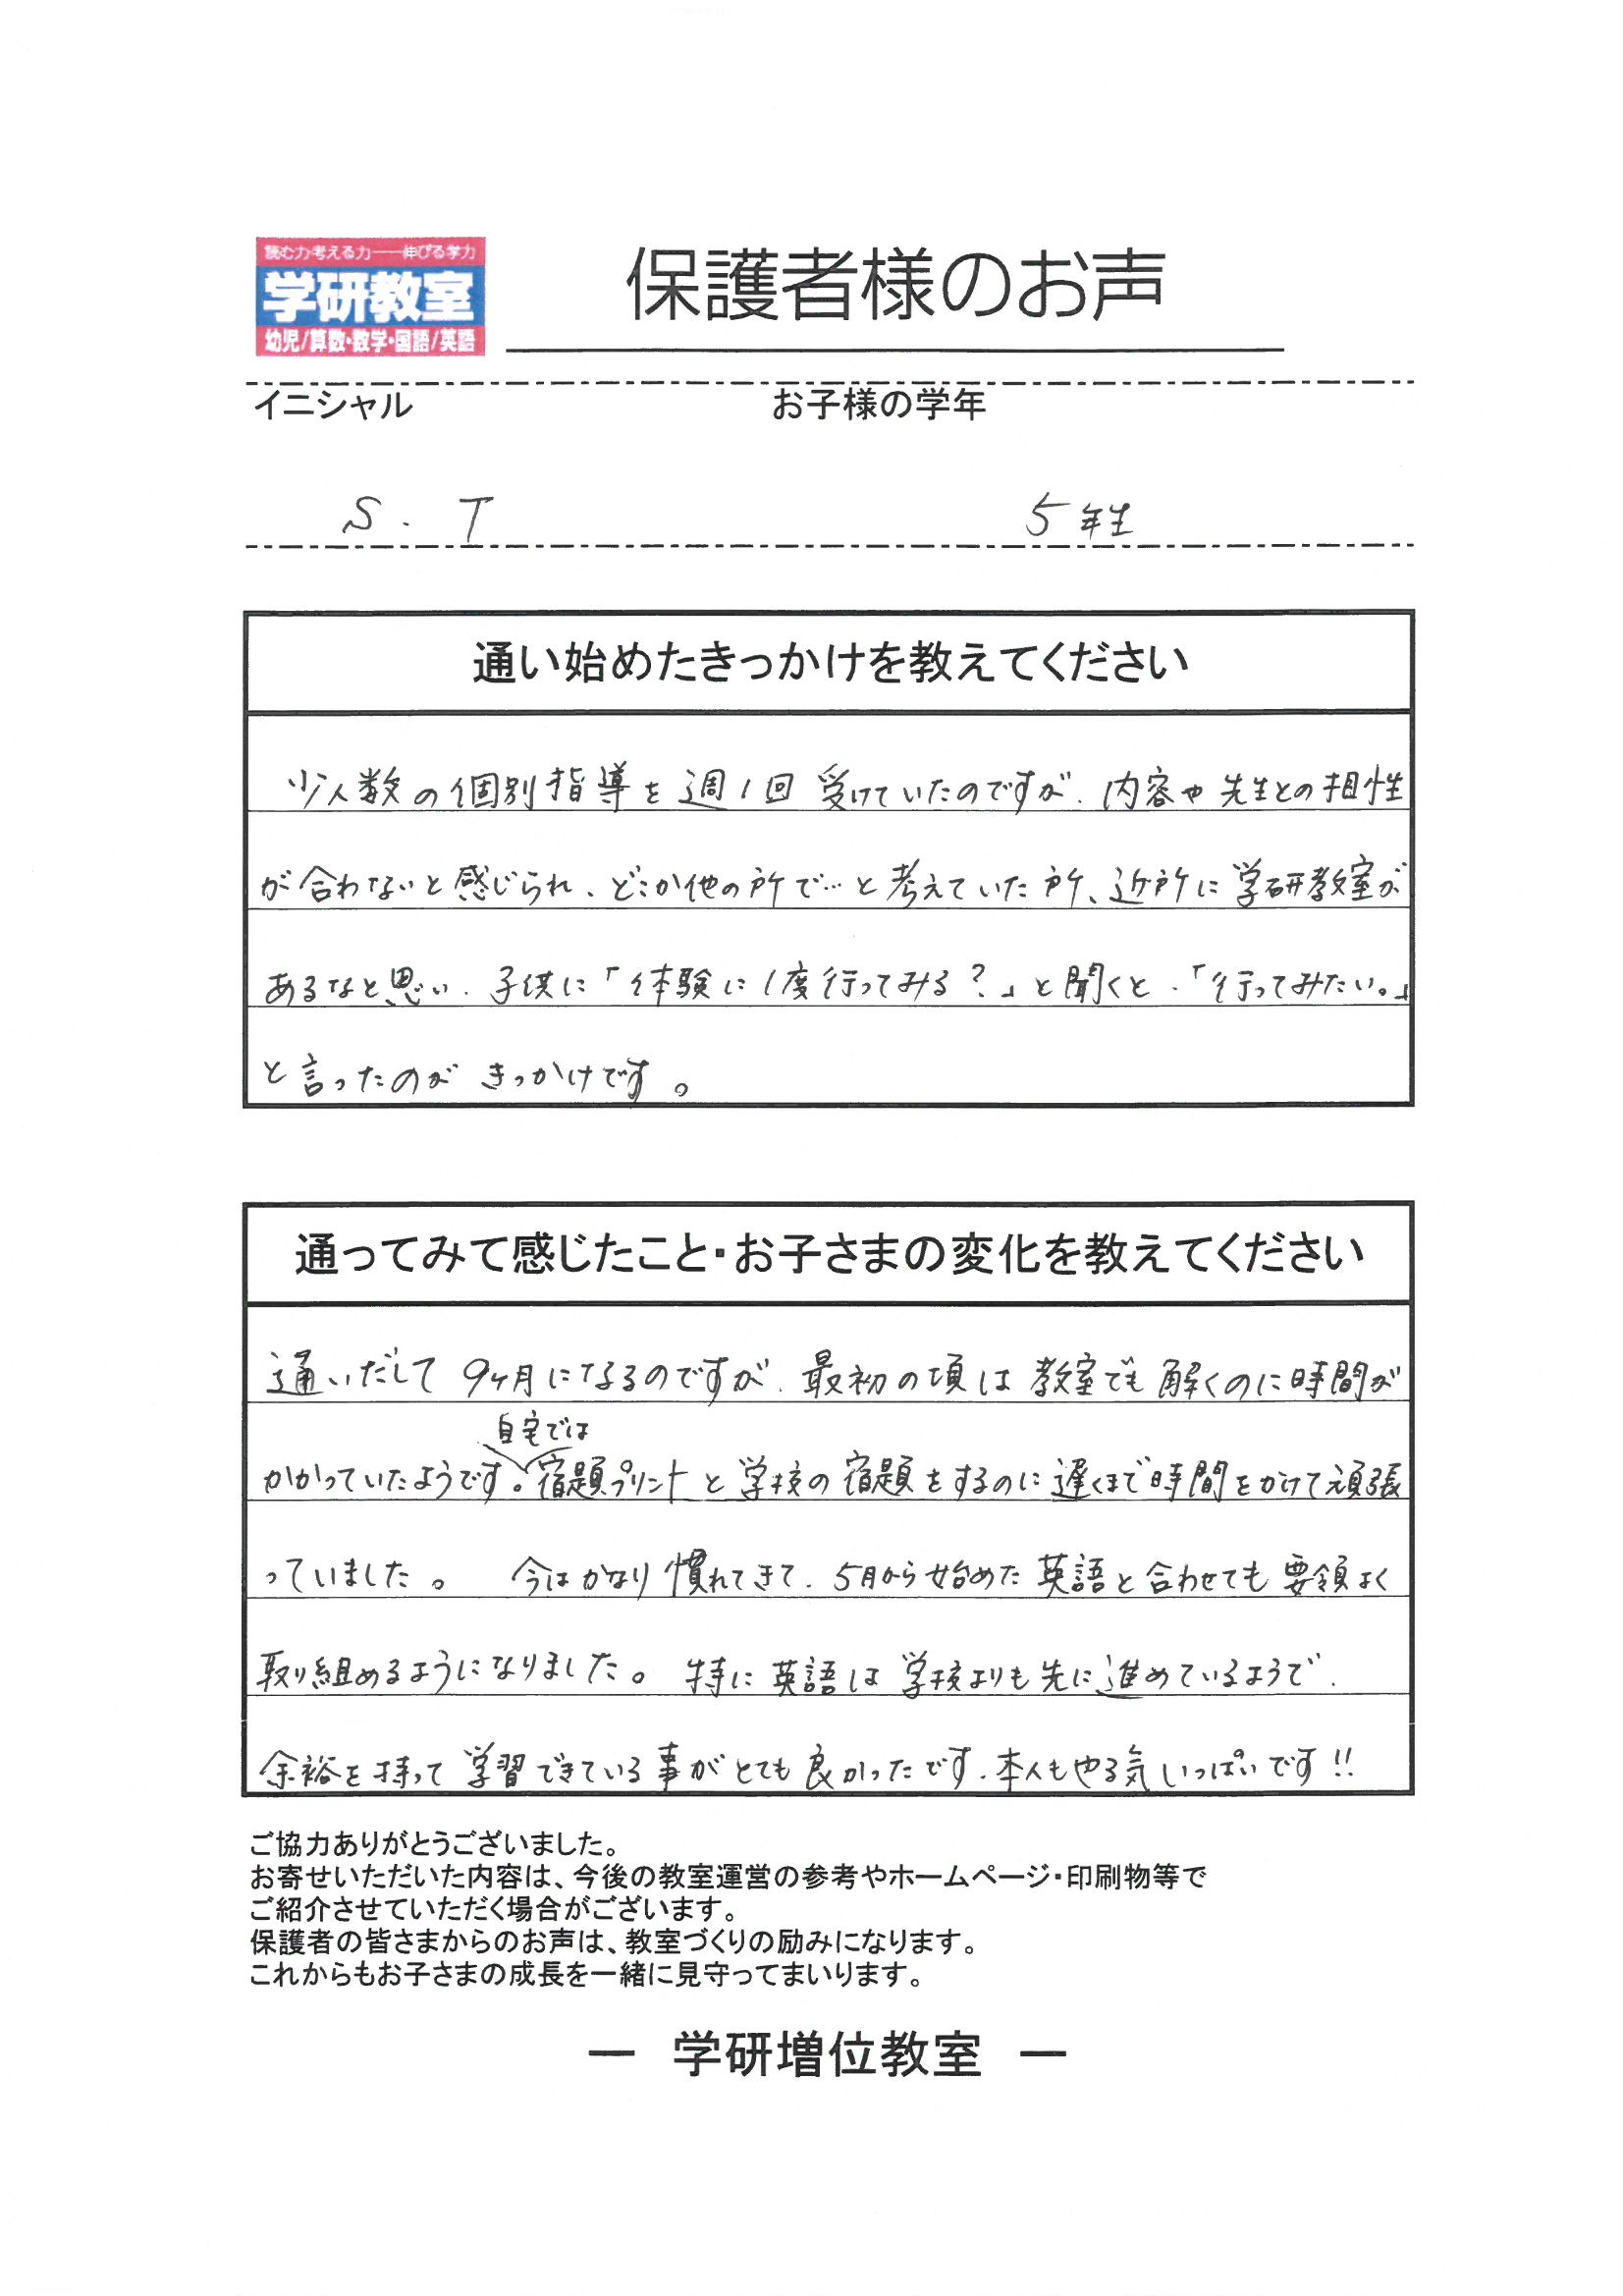 読む力考える力──伸びる学力
学研教室
幼児/算数・数学・国語/英語
保護者様のお声
イニシャル お子様の学年
S.T 5年生
通い始めたきっかけを教えてください
少人数の個別指導を週1回受けていたのですが、内容や先生との相性
が合わないと感じられ、どこか他の所で…と考えていた所、近所に学研教室が
あるなと思い、子供に「体験に1度行ってみる?」と聞くと、「行ってみたい。」
と言ったのがきっかけです。
通ってみて感じたこと・お子さまの変化を教えてください
通いだして9ヶ月になるのですが、最初の頃は教室でも解くのに時間が
自宅では
かかっていたようです。宿題プリントと学校の宿題をするのに遅くまで時間をかけて頑張
っていました。 今はかなり慣れてきて、5月から始めた英語と合わせても要領よく
取り組めるようになりました。特に英語は学校よりも先に進めているようで、
余裕を持って学習できている事がとても良かったです。本人もやる気いっぱいです!!
ご協力ありがとうございました。
お寄せいただいた内容は、今後の教室運営の参考やホームページ・印刷物等で
ご紹介させていただく場合がございます。
保護者の皆さまからのお声は、教室づくりの励みになります。
これからもお子さまの成長を一緒に見守ってまいります。
― 学研増位教室 ―